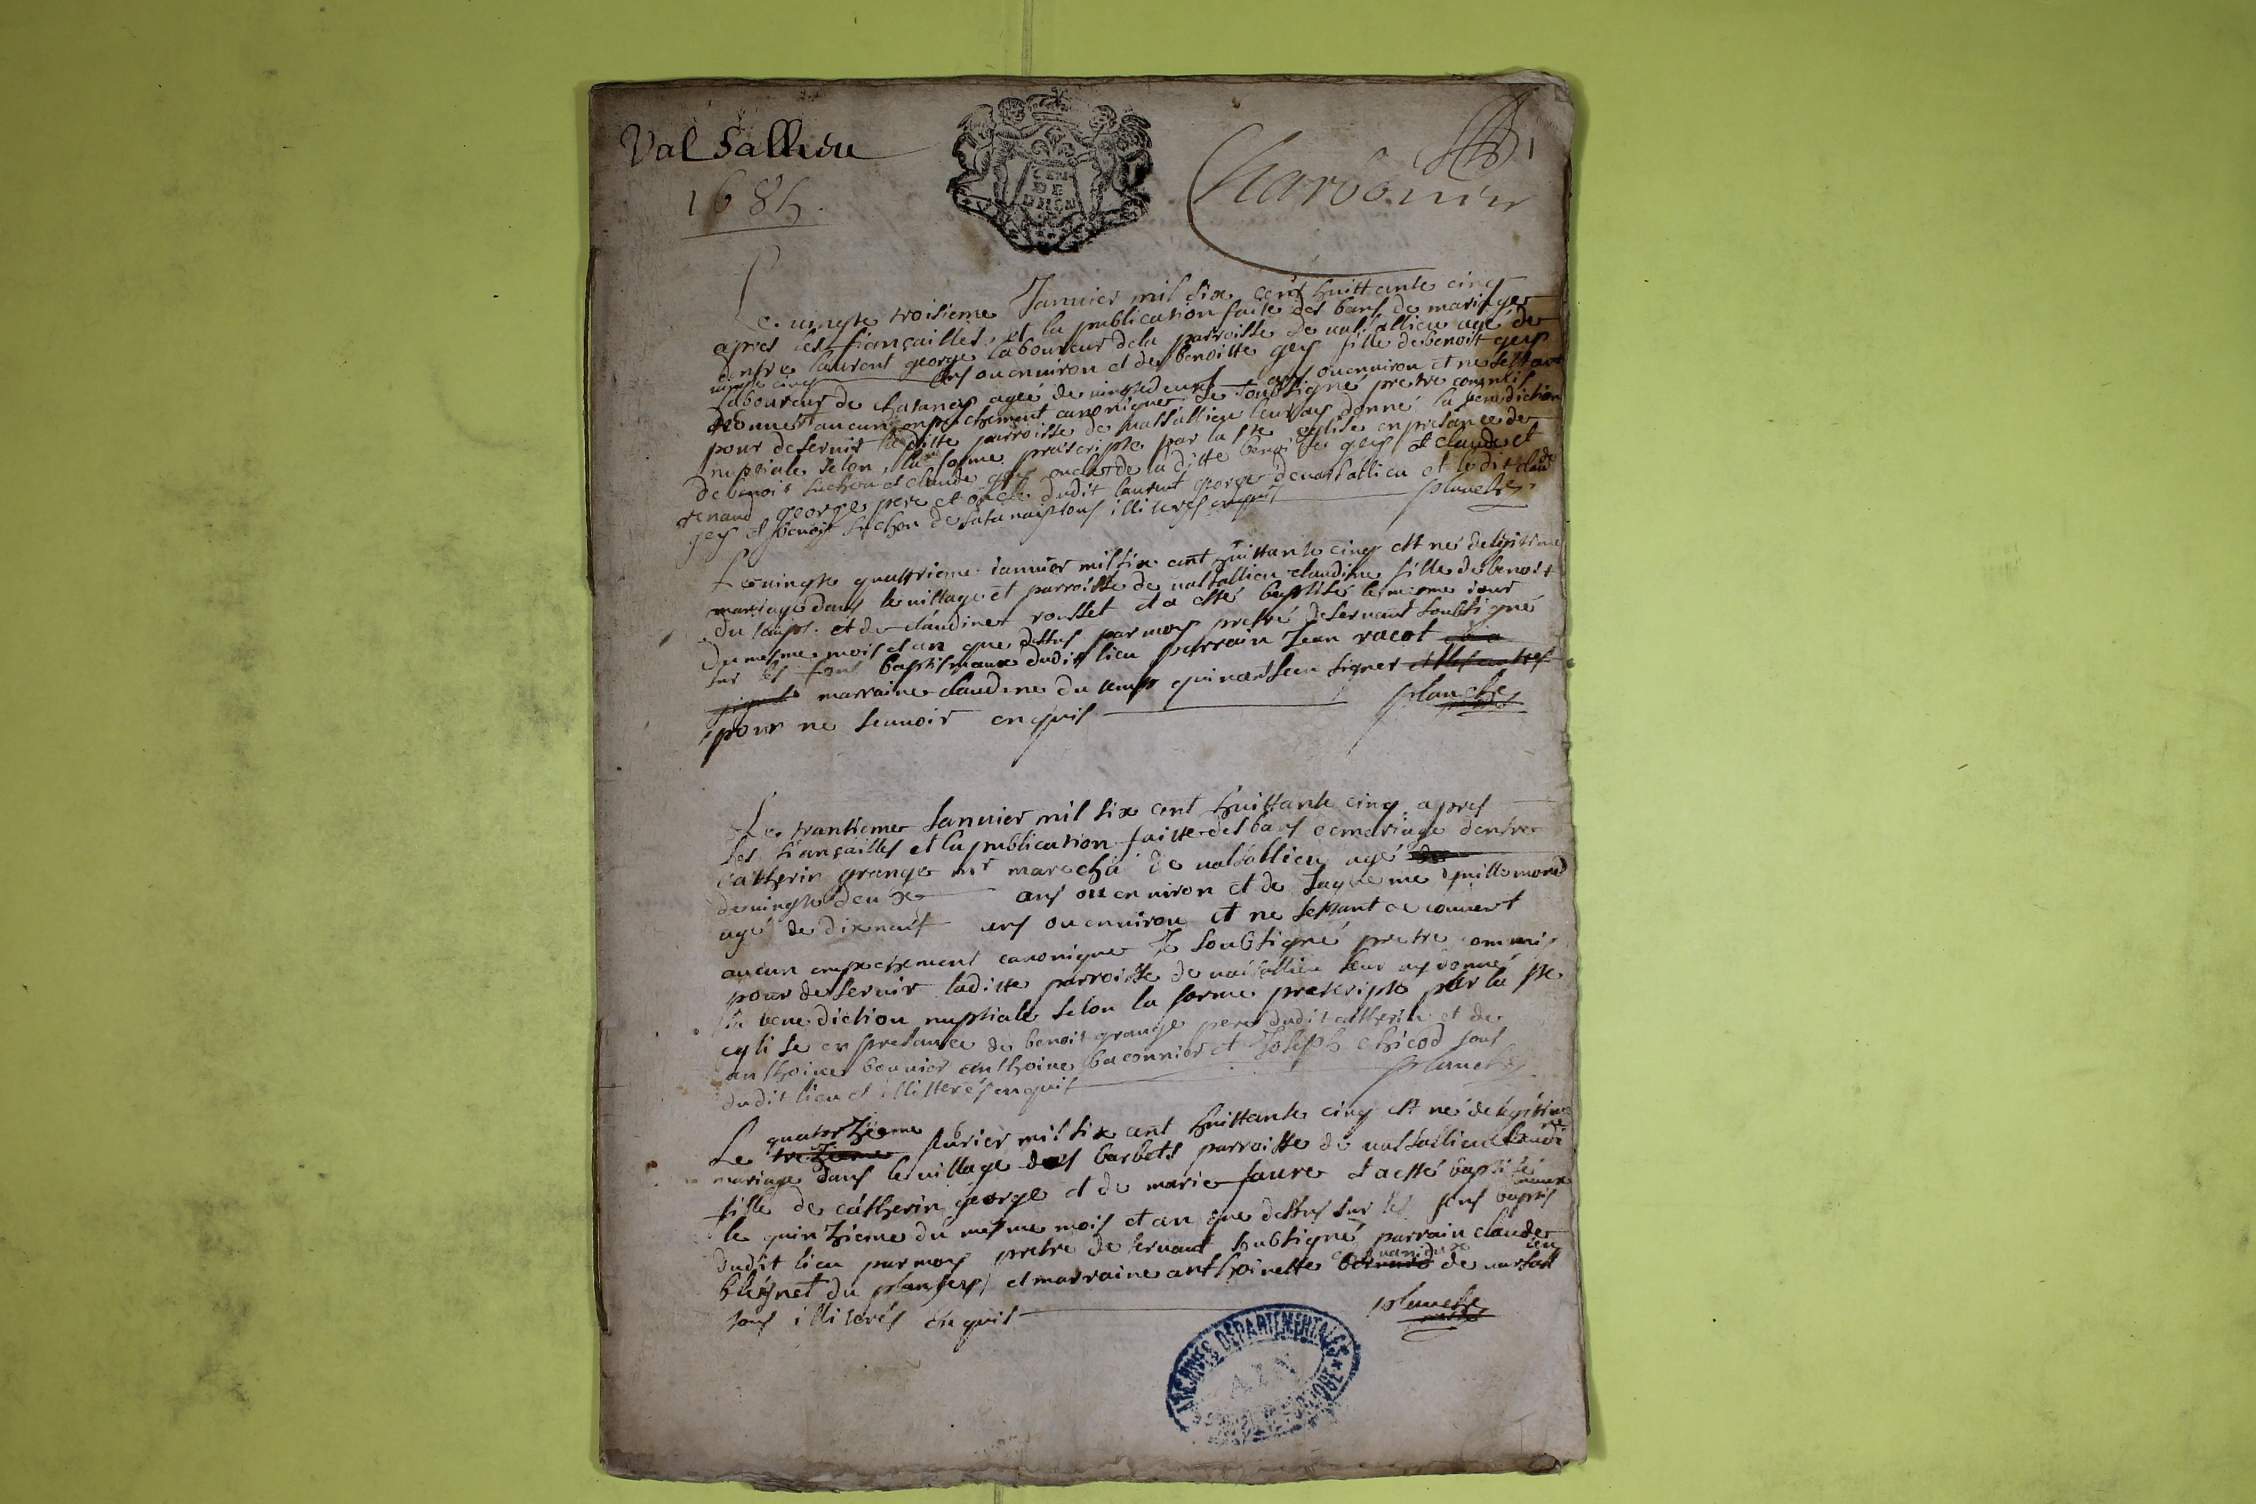 Val Sallieu
1685.
GEN
DE
DIION
Charbonier
1
Le vingte troisieme Janvier mil six cent huittante cinq
apres les fiançailles, et la publication faite des bans de mariage
dentre laurent george laboureur dela parroisse de valsallieu agé de
vingte cinq ans ou environ et de benoitte gey fille de benoit gey
laboureur de Chatanay ageé de vingtedeux ans ou environ et ne sestant
trouué aucun empechement canonique Je soubsigné pretre commis
pour deseruir la ditte parroisse de valsallieu leur ay donné la benediction
nuptiale selon la forme prescripte par la ste eglise en presance de
de benoit Suchon et claude gey oncle de la ditte benoitte gey et claude et
renaud george pere et oncle dudit laurent george de valsallieu et ledit claude
gey et benoit suchon de satanay tous illiterés enquis planche
Le vingte quattrieme ianuier mil six cent huittante cinq est né de legitime
mariage dans le village et parroisse de valsallieu claudine fille de benoit
du temps. et de claudine rousset et a esté baptisé le mesme iour
du mesme mois et an que dessus par moy pretre deseruant soubsigné
sur les fons baptismaux dudit lieu parrain Jean racot
marraine claudine du temps qui nont sceu signer et les autres
pour ne scauoir enquis planche
Le trantieme Januier mil six cent huittante cinq apres
les fiançailles et la publication faitte des bans de mariage dentre
catherin grange mr marecha de valsallieu agé de
de vingte deux ans ou environ et de Jaqueme guillemond
agé de dixneuf ans ou environ et ne sestant decouuert
aucun empechement canonique Je soubsigné pretre commis
pour desseruir laditte parroisse de valsallieu leur ay donné
la benediction nuptiale selon la forme prescripte par la ste
eglise en presance de benoit grange pere dudit catherin et de
anthoine bounier anthoine baconnier et Joseph chicod tous
dudit lieu et illitterés enquis planche
Le trezieme quatorzieme feburier mil six cent huittante cinq est né de legitime
mariage dans le village des barbets parroisse de valsallieu claudine
fille de catherin george et de marie faure et a esté baptisé
le quinzieme du mesme mois et an que dessus sur les fons baptismaux
dudit lieu par moy pretre deseruant soubsigné parrain claude
et marraine anthoinette de valsallieu
tous illiterés enquis planche
ARCHIVES DÉPARTEMENTALES
AIN